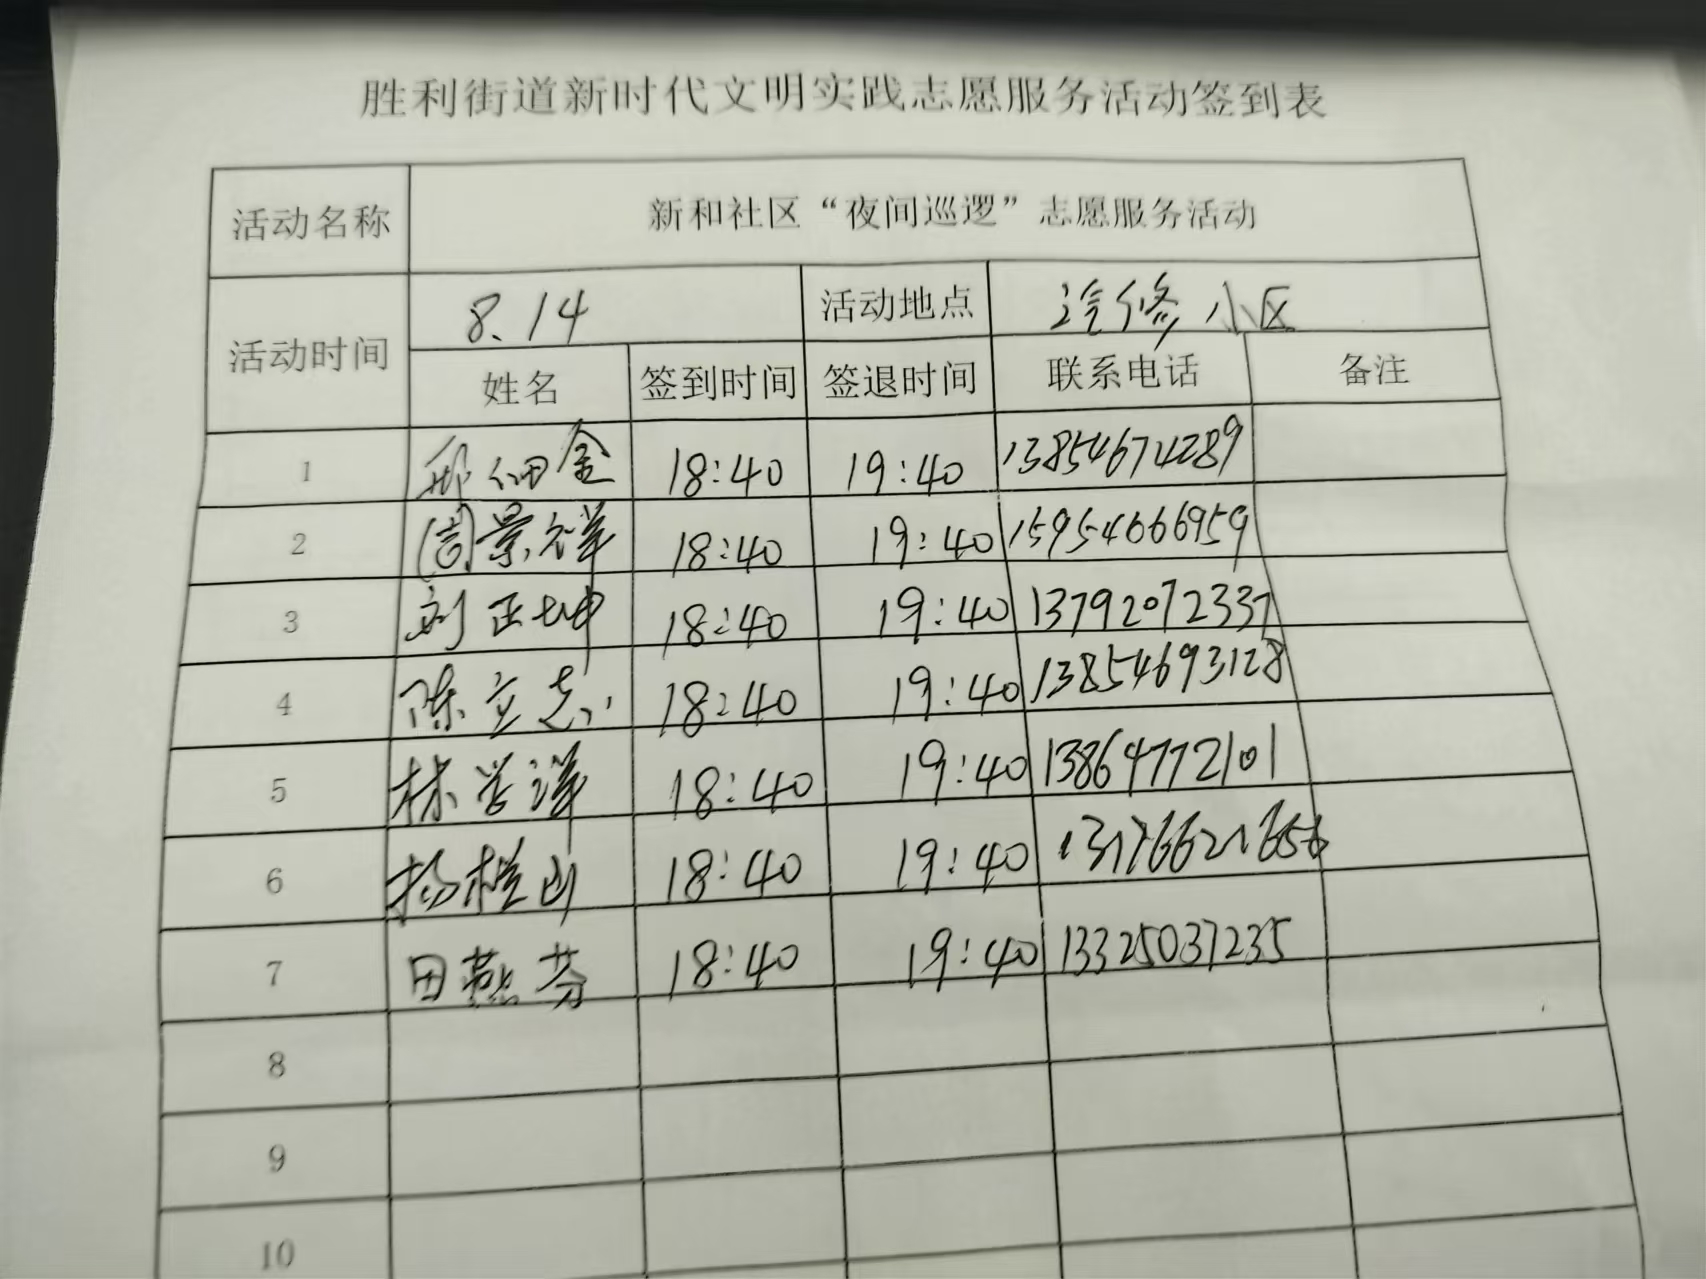 胜利街道新时代文明实践志愿服务活动签到表
活动名称 新和社区“夜间巡逻”志愿服务活动
活动时间 8.14 活动地点 汽修小区
姓名 签到时间 签退时间 联系电话 备注
1 邢佃金 18:40 19:40 13854674289
2 周景祥 18:40 19:40 15954666959
3 刘正坤 18:40 19:40 13792072337
4 陈立志 18:40 19:40 13854693128
5 林学洋 18:40 19:40 13864772101
6 杨桂山 18:40 19:40
7 田燕芬 18:40 19:40 13325037235
8
9
10